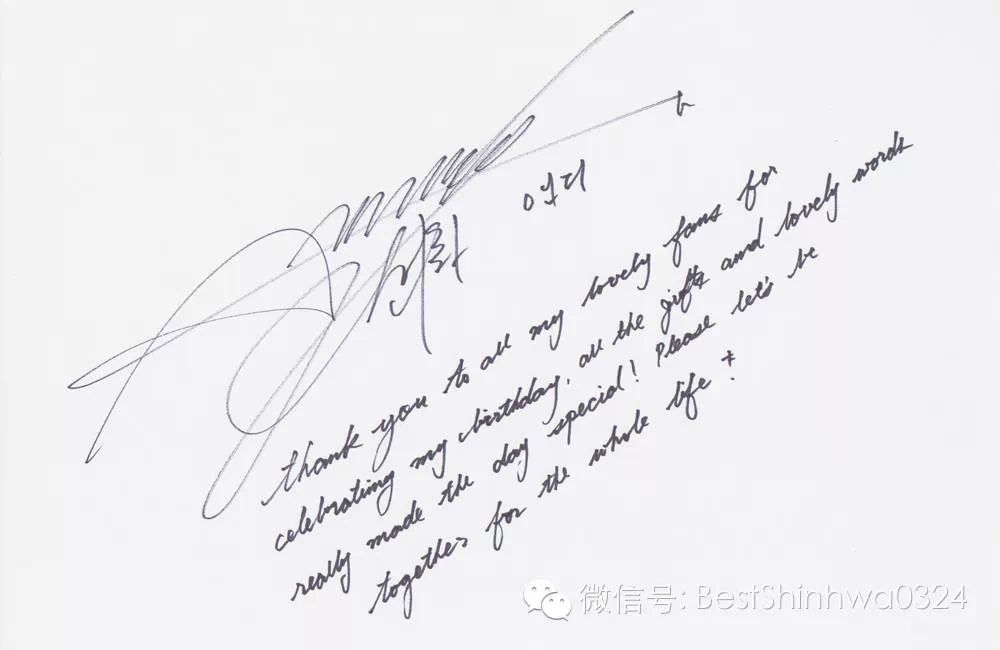 신화 앤디
thank you to all my lovely fans for
celebrating my birthday, all the gifts and lovely words
really made the day special! Please let's be
together for the whole life
微信号: BestShinhwa0324